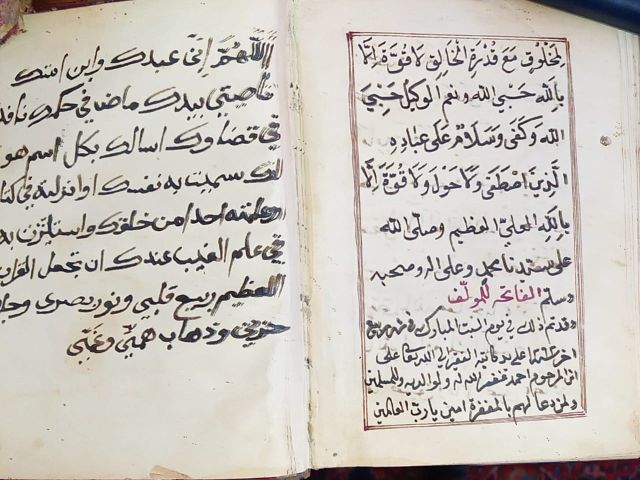 لمخلوق مع قدرة الخالق لا قوة الا
بالله حسبي الله ونعم الوكيل حسبي
الله وكفى وسلام على عباده
الذين اصطفى ولا حول ولا قوة الا
بالله العلي العظيم وصلى الله
على سيدنا محمد وعلى اله وصحبه
وسلم الفاتحه للمولف
وقد تم ذلك في يوم السبت المبارك في شهر ربيع
اخر على يد كاتبه الفقير الى الله تعالى على
ابن المرحوم احمد غفر الله له ولوالديه وللمسلمين
ولمن دعا لهم بالمغفرة امين يارب العالمين
اللهم اني عبدك وابن امتك
ناصيتي بيدك ماض في حكمك نافذ
في قضاوك اسالك بكل اسم هو
لك سميت به نفسك او انزلته في كتا
او علمته احدا من خلقك واستاثرت به
في علم الغيب عندك ان تجعل القران
العظيم ربيع قلبي ونور بصري وجلا
حزني وذهاب همي وغمي